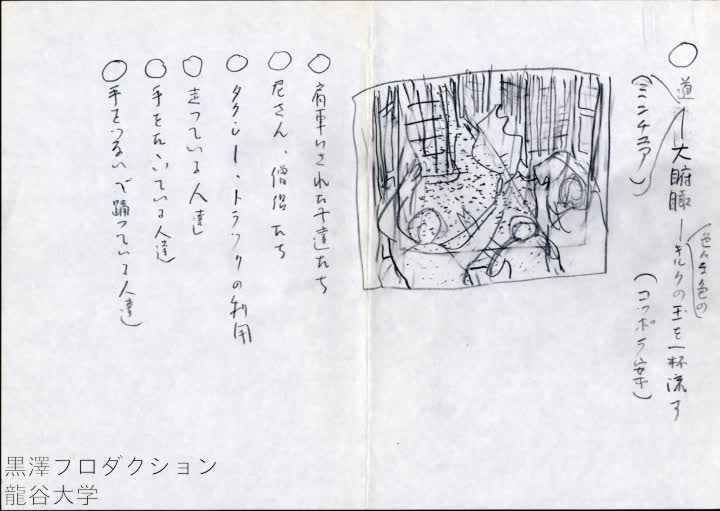 ○ 道ー大俯瞰ーキルクの玉を一杯流す
色々な色の
(ミニチュアー)
(コッポラ案)
○ 肩車いされた子達たち
○ 尼さん、僧侶たち
○ タクシー・トラックの利用
○ 走っている人達
○ 手をたたいている人達
○ 手をつないで踊っている人達
黒澤プロダクション
龍谷大学